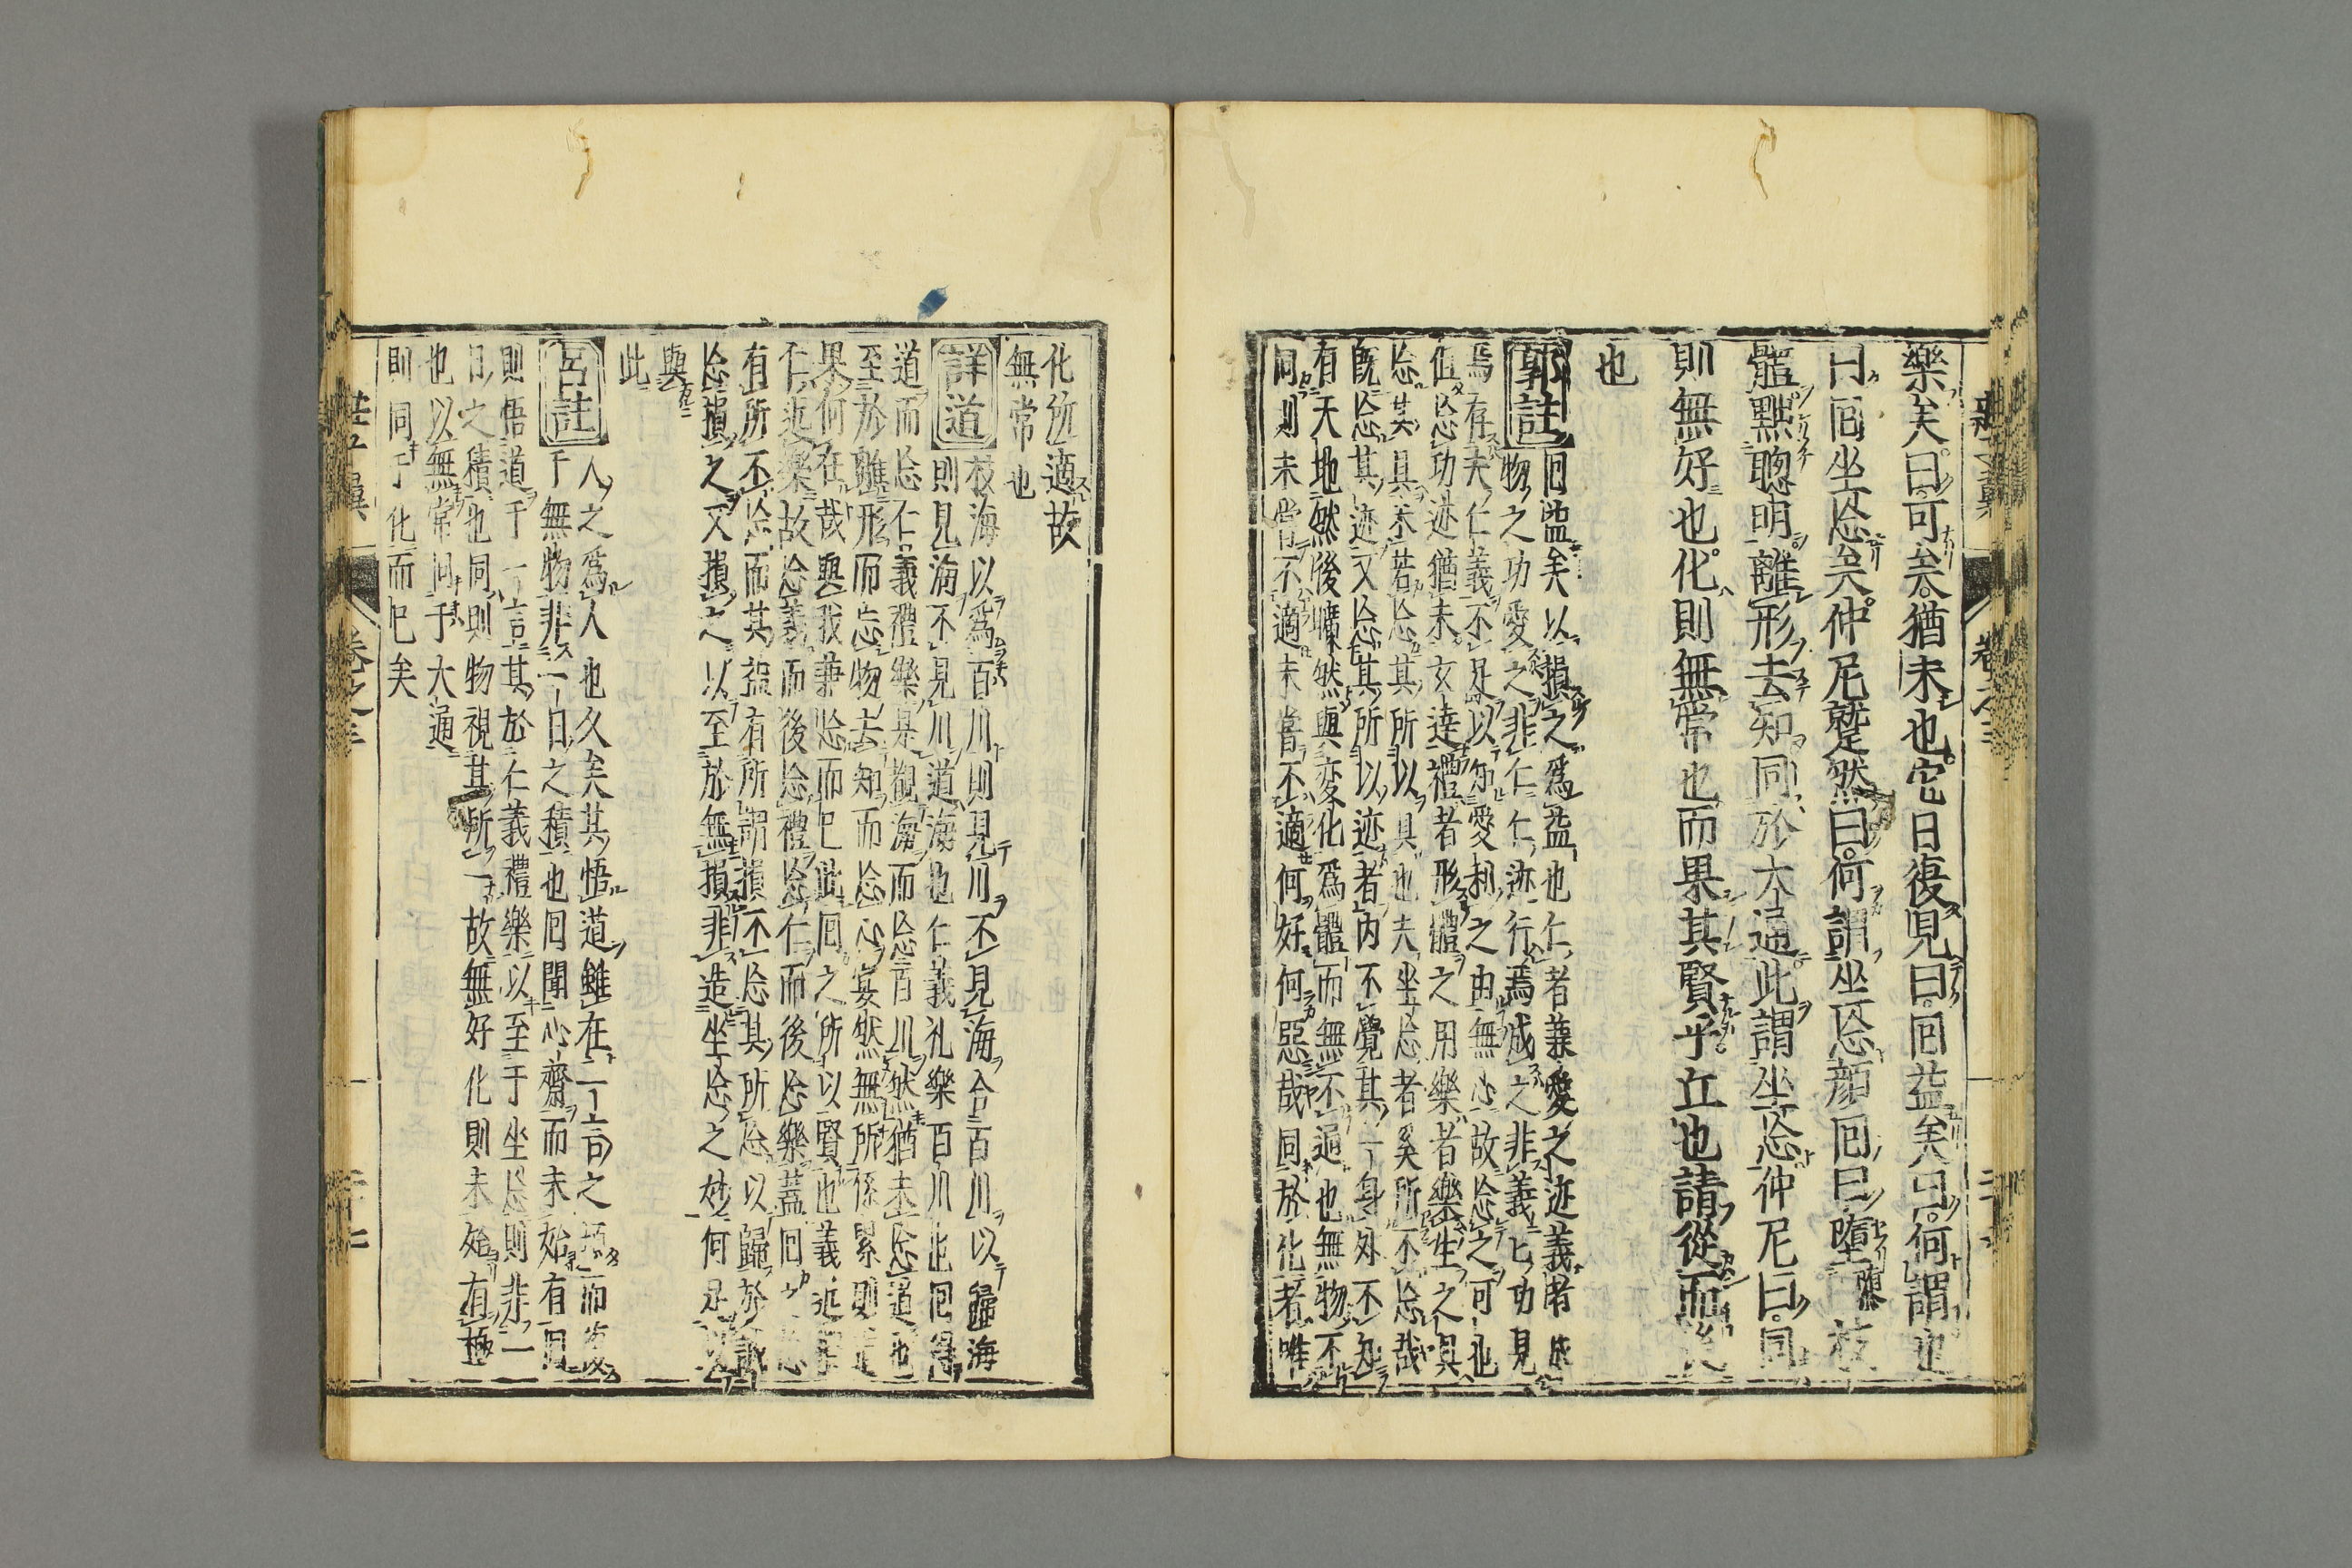 樂矣曰可矣猶未也它日復見曰回益矣曰何謂也
曰回坐忘矣仲尼蹵然曰何謂坐忘顏回曰墮枝
體黜聰明離形去知同於大通此謂坐忘仲尼曰同
則無好也化則無常也而果其賢乎丘也請從而後
也
郭註
回益矣以損之爲益也仁者兼愛之迹義者成
物之功愛之非仁仁迹行焉成之非義義功見
焉存夫仁義不足以知愛利之由無心故忘之可也
但忘功迹猶未玄達禮者形體之用樂者樂生之具
忘其具未若忘其所以具也夫坐忘者奚所不忘哉
旣忘其迹又忘其所以迹者內不覺其一身外不知
有天地然後曠然與変化爲體而無不通也無物不
同則未嘗不適未嘗不適何好何惡哉同於化者唯
化所適故
無常也
詳道
枝海以爲百川則見川不見海合百川以歸海
則見海不見川道海也仁義礼樂百川也回得
道而忘仁義禮樂是觀海而忘百川然猶未忘道也
至於離形而忘物去知而忘心宴然無所係累則
果何在哉與我兼忘而已此回之所以賢也義近
仁近樂故忘義而後忘禮忘仁而後忘樂蓋回
有所不忘而其益有所謂損不忘其所忘以歸於誠
忘損之又損之以至於無損非造坐忘之妙何足
與
此
呂註
人之爲人也久矣其悟道雖在一言之頃而復
于無物非一日之積也回聞心齋而未始有回
則悟道于一言其於仁義禮樂以至于坐忘則非一
日之積也同則物視其所一故無好化則未始有極
也以無常同于大通
則同于化而已矣
莊子翼 卷之三